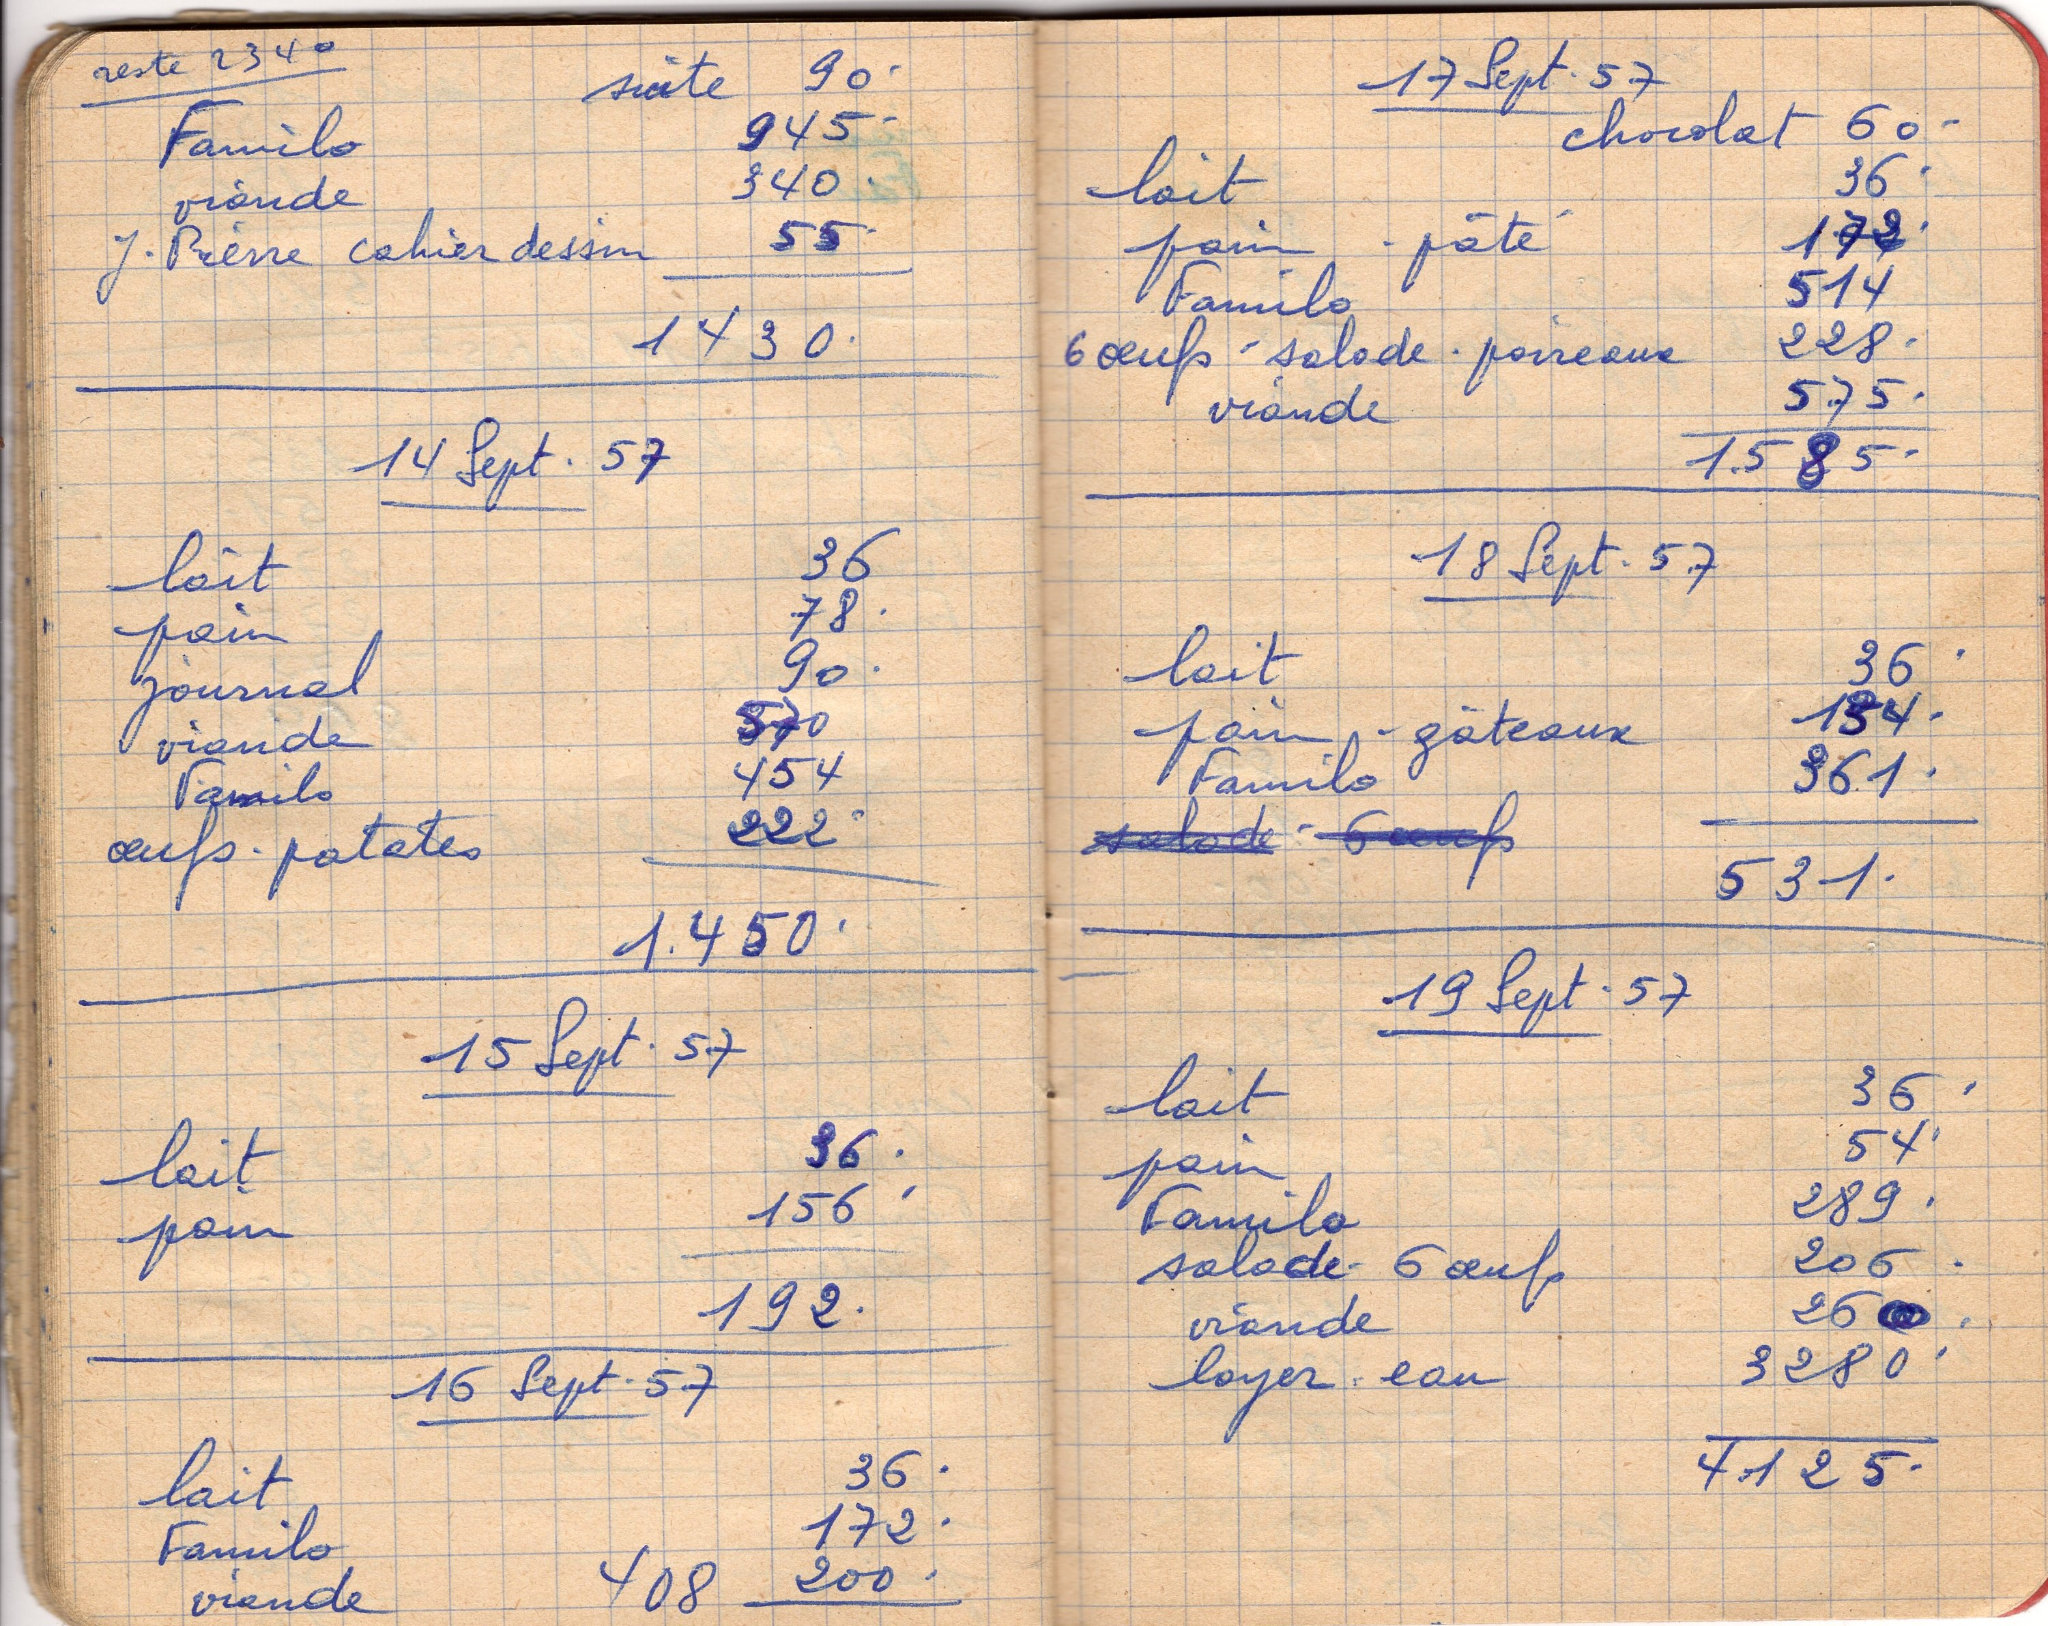 reste 2340
suite 90
Familo 945
viande 340
J. Pierre cahier dessin 55
1430
14 Sept. 57
lait 36
pain 78
journal 90
viande 570
Familo 454
œufs - patates 222
1.450
15 Sept. 57
lait 36
pain 156
192
16 Sept. 57
lait 36
Familo 172
viande 408 200
17 Sept. 57
chocolat 60
lait 36
pain - pâté 172
Familo 514
6 œufs - salade - poireaux 228
viande 575
1.585
18 Sept. 57
lait 36
pain - gâteaux 134
Familo 361
salade - 6 œufs
531
19 Sept. 57
lait 36
pain 54
Familo 289
salade - 6 œufs 206
viande 260
loyer - eau 3280
4125